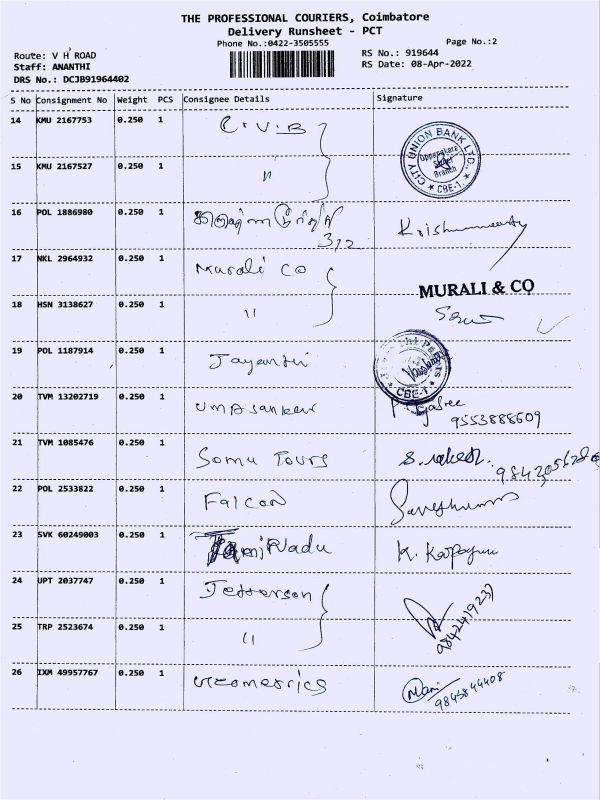 THE PROFESSIONAL COURIERS, Coimbatore
Delivery Runsheet - PCT
Phone No.:0422-3505555
Page No.:2
Route: V H ROAD
RS No.: 919644
Staff: ANANTHI
RS Date: 08-Apr-2022
DRS No.: DCJB91964402
S No Consignment No Weight PCS Consignee Details Signature
14 KMU 2167753 0.250 1 C.V.B
CITY UNION BANK LTD., Oppanakara Street Branch CBE-1
15 KMU 2167527 0.250 1 "
16 POL 1886980 0.250 1
312
17 NKL 2964932 0.250 1 Murali CO
MURALI & CO
18 HSN 3138627 0.250 1 "
19 POL 1187914 0.250 1 Jayanthi CBE-1
20 TVM 13202719 0.250 1 Umasankar
9553888609
21 TVM 1085476 0.250 1 Somu Tours S.
22 POL 2533822 0.250 1 Falcon
23 SVK 60249003 0.250 1 TamilNadu K.
24 UPT 2037747 0.250 1 Jefferson
9842419237
25 TRP 2523674 0.250 1 "
26 IXM 49957767 0.250 1 Mani
9845844408